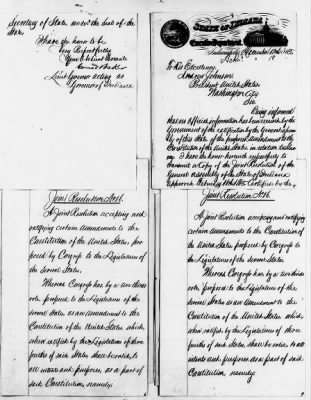 Secretary of State, under the Seal of the
State.
I have the honor to be
Very Respectfully
Your Obedient Servant
Conrad Baker
Lieut Governor acting as
Governor of Indiana
STATE OF INDIANA
Executive Department
Indianapolis December 1865
To His Excellency,
Andrew Johnson
President United States
Washington City
Sir
Being informed
that no official information has been received by the
Government of the ratification by the General Assem-
bly of this State of the proposed amendment to the
Constitution of the United States in relation to
I have the honor herewith respectfully to
transmit a Copy of the Joint Resolution of the
General Assembly of the State of Indiana
approved February certified by the
Joint Resolution No 16.
A Joint Resolution accepting and
ratifying certain Amendments to the
Constitution of the United States, pro-
posed by Congress to the Legislatures of
the several States.
Whereas Congress has by a two thirds
vote, proposed to the Legislatures of the
several States as an Amendment to the
Constitution of the United States which,
when ratified by the Legislatures of three
fourths of said States shall be valid, to
all intents and purposes, as a part of
said Constitution, namely:
Joint Resolution No 16.
A Joint Resolution accepting and ratifying
certain Amendments to the Constitution of
the United States proposed by Congress to
the Legislatures of the several States.
Whereas Congress has by a two thirds
vote, proposed to the Legislatures of the
several States as an Amendment to the
Constitution of the United States which,
when ratified by the Legislatures of three
fourths of said States, shall be valid to all
intents and purposes as a part of said
Constitution, namely: